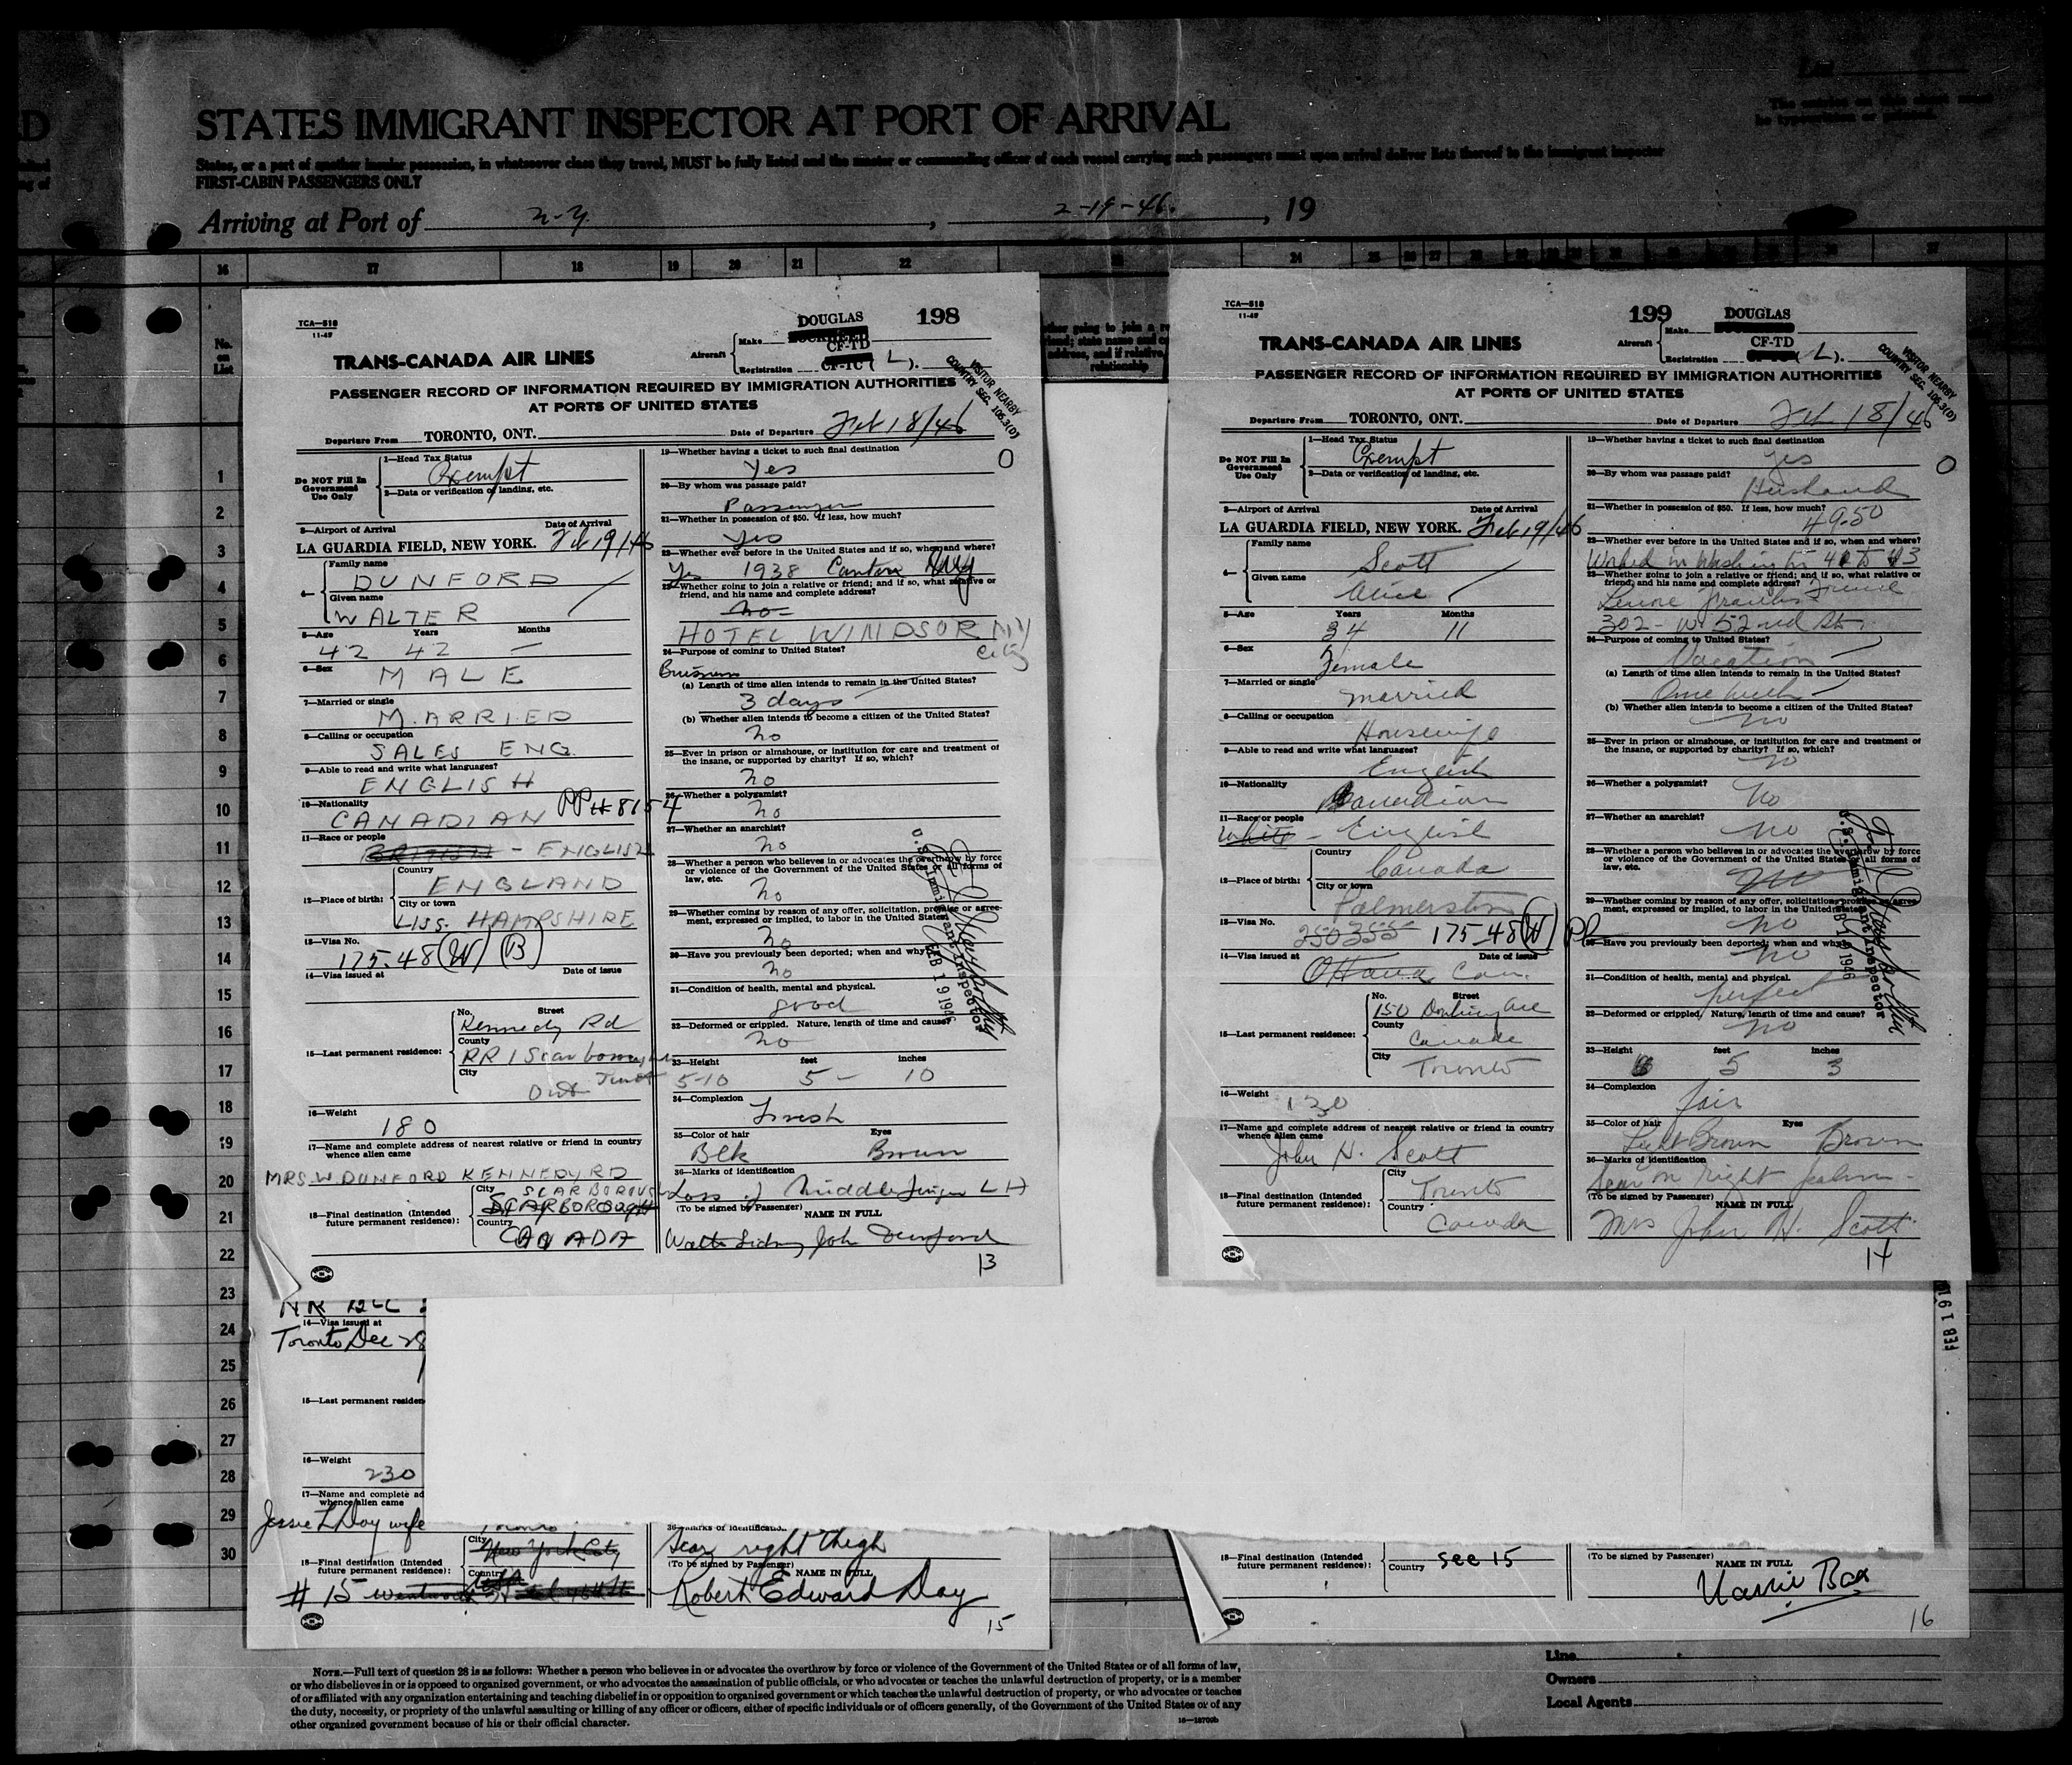 STATES IMMIGRANT INSPECTOR AT PORT OF ARRIVAL
States, or a part of another insular possession, in whatsoever class they travel, MUST be fully listed and the master or commanding officer of each vessel carrying such passengers must upon arrival deliver lists thereof to the immigrant inspector
FIRST-CABIN PASSENGERS ONLY
Arriving at Port of N-Y. , 2-19-46. , 19
16 17 18 19 20 21 22 24
No. on List
TCA—518
11-45
DOUGLAS
198
Aircraft
Make
CF-TD
Registration CF-TC ( L ).
TRANS-CANADA AIR LINES
VISITOR NEARBY
COUNTRY SEC. 106.3(D)
PASSENGER RECORD OF INFORMATION REQUIRED BY IMMIGRATION AUTHORITIES
AT PORTS OF UNITED STATES
Departure From TORONTO, ONT. Date of Departure Feb 18/46
Do NOT Fill In Government Use Only
1—Head Tax Status
Exempt
2—Data or verification of landing, etc.
3—Airport of Arrival Date of Arrival
LA GUARDIA FIELD, NEW YORK. Feb 19/46
4—
Family name
DUNFORD
Given name
WALTER
5—Age Years Months
42 42 —
6—Sex
MALE
7—Married or single
MARRIED
8—Calling or occupation
SALES ENG.
9—Able to read and write what languages?
ENGLISH
10—Nationality
CANADIAN PP# 8154
11—Race or people
BRITISH - ENGLISH
12—Place of birth:
Country
ENGLAND
City or town
LISS. HAMPSHIRE
13—Visa No.
175.48 (W) (B)
14—Visa issued at Date of issue
15—Last permanent residence:
No. Street
Kennedy Rd
County
RR 1 Scarborough
City
Junct Ont
16—Weight
180
17—Name and complete address of nearest relative or friend in country whence alien came
MRS. W. DUNFORD KENNEDY RD
18—Final destination (Intended future permanent residence):
City
SCARBOROUGH
SCARBOROUGH
Country
CANADA
19—Whether having a ticket to such final destination
Yes
O
20—By whom was passage paid?
Passenger
21—Whether in possession of $50. If less, how much?
Yes
22—Whether ever before in the United States and if so, when and where?
Yes 1938 Canton
23—Whether going to join a relative or friend; and if so, what relative or friend, and his name and complete address?
no
HOTEL WINDSOR NY City
24—Purpose of coming to United States?
Business
(a) Length of time alien intends to remain in the United States?
3 days
(b) Whether alien intends to become a citizen of the United States?
no
25—Ever in prison or almshouse, or institution for care and treatment of the insane, or supported by charity? If so, which?
no
26—Whether a polygamist?
no
27—Whether an anarchist?
no
28—Whether a person who believes in or advocates the overthrow by force or violence of the Government of the United States or all forms of law, etc.
no
29—Whether coming by reason of any offer, solicitation, promise or agreement, expressed or implied, to labor in the United States?
no
30—Have you previously been deported; when and why?
no
31—Condition of health, mental and physical.
good
32—Deformed or crippled. Nature, length of time and cause?
no
33—Height feet inches
5-10 5 - 10
34—Complexion
Fresh
35—Color of hair Eyes
Blk Brown
36—Marks of identification
Loss of middle finger L H
(To be signed by Passenger) NAME IN FULL
Walter Sidney John Dunford
13
U.S. Immigrant Inspector
FEB 19 1946
TCA—518
11-45
199
DOUGLAS
Aircraft
Make
CF-TD
Registration ( L ).
TRANS-CANADA AIR LINES
VISITOR NEARBY
COUNTRY SEC. 106.3(D)
PASSENGER RECORD OF INFORMATION REQUIRED BY IMMIGRATION AUTHORITIES
AT PORTS OF UNITED STATES
Departure From TORONTO, ONT. Date of Departure Feb 18/46
Do NOT Fill In Government Use Only
1—Head Tax Status
Exempt
2—Data or verification of landing, etc.
3—Airport of Arrival Date of Arrival
LA GUARDIA FIELD, NEW YORK. Feb 19/46
4—
Family name
Scott
Given name
Alice
5—Age Years Months
34 11
6—Sex
Female
7—Married or single
married
8—Calling or occupation
Housewife
9—Able to read and write what languages?
English
10—Nationality
Canadian
11—Race or people
White - English
12—Place of birth:
Country
Canada
City or town
Palmerston
13—Visa No.
250355 175-48 (W) PP
14—Visa issued at Date of issue
Ottawa Can.
15—Last permanent residence:
No. Street
150 Ave
County
Canada
City
Toronto
16—Weight
130
17—Name and complete address of nearest relative or friend in country whence alien came
John H. Scott
18—Final destination (Intended future permanent residence):
City
Toronto
Country
Canada
19—Whether having a ticket to such final destination
yes
O
20—By whom was passage paid?
Husband
21—Whether in possession of $50. If less, how much?
49.50
22—Whether ever before in the United States and if so, when and where?
Worked in Washington 42 to 43
23—Whether going to join a relative or friend; and if so, what relative or friend, and his name and complete address?
Friend
302 - W. 52nd St.
24—Purpose of coming to United States?
Vacation
(a) Length of time alien intends to remain in the United States?
One week
(b) Whether alien intends to become a citizen of the United States?
no
25—Ever in prison or almshouse, or institution for care and treatment of the insane, or supported by charity? If so, which?
no
26—Whether a polygamist?
No
27—Whether an anarchist?
no
28—Whether a person who believes in or advocates the overthrow by force or violence of the Government of the United States or all forms of law, etc.
no
29—Whether coming by reason of any offer, solicitation, promise or agreement, expressed or implied, to labor in the United States?
no
30—Have you previously been deported; when and why?
no
31—Condition of health, mental and physical.
perfect
32—Deformed or crippled. Nature, length of time and cause?
no
33—Height feet inches
5 3
34—Complexion
fair
35—Color of hair Eyes
Light Brown Brown
36—Marks of identification
Scar on right palm -
(To be signed by Passenger) NAME IN FULL
Mrs John H. Scott
14
U.S. Immigrant Inspector
FEB 19 1946
14—Visa issued at
Toronto Dec 28
15—Last permanent residen
16—Weight
230
17—Name and complete ad
whence alien came
Jessie L Day wife
18—Final destination (Intended future permanent residence):
City
New York City
Country
USA
# 15
36—Marks of identification
Scar right thigh
(To be signed by Passenger)
NAME IN FULL
Robert Edward Day
15
FEB 19 1
18—Final destination (Intended future permanent residence):
Country see 15
(To be signed by Passenger)
NAME IN FULL
16
1
2
3
4
5
6
7
8
9
10
11
12
13
14
15
16
17
18
19
20
21
22
23
24
25
26
27
28
29
30
NOTE.—Full text of question 28 is as follows: Whether a person who believes in or advocates the overthrow by force or violence of the Government of the United States or of all forms of law,
or who disbelieves in or is opposed to organized government, or who advocates the assassination of public officials, or who advocates or teaches the unlawful destruction of property, or is a member
of or affiliated with any organization entertaining and teaching disbelief in or opposition to organized government or which teaches the unlawful destruction of property, or who advocates or teaches
the duty, necessity, or propriety of the unlawful assaulting or killing of any officer or officers, either of specific individuals or of officers generally, of the Government of the United States or of any
other organized government because of his or their official character.
Line
Owners
Local Agents